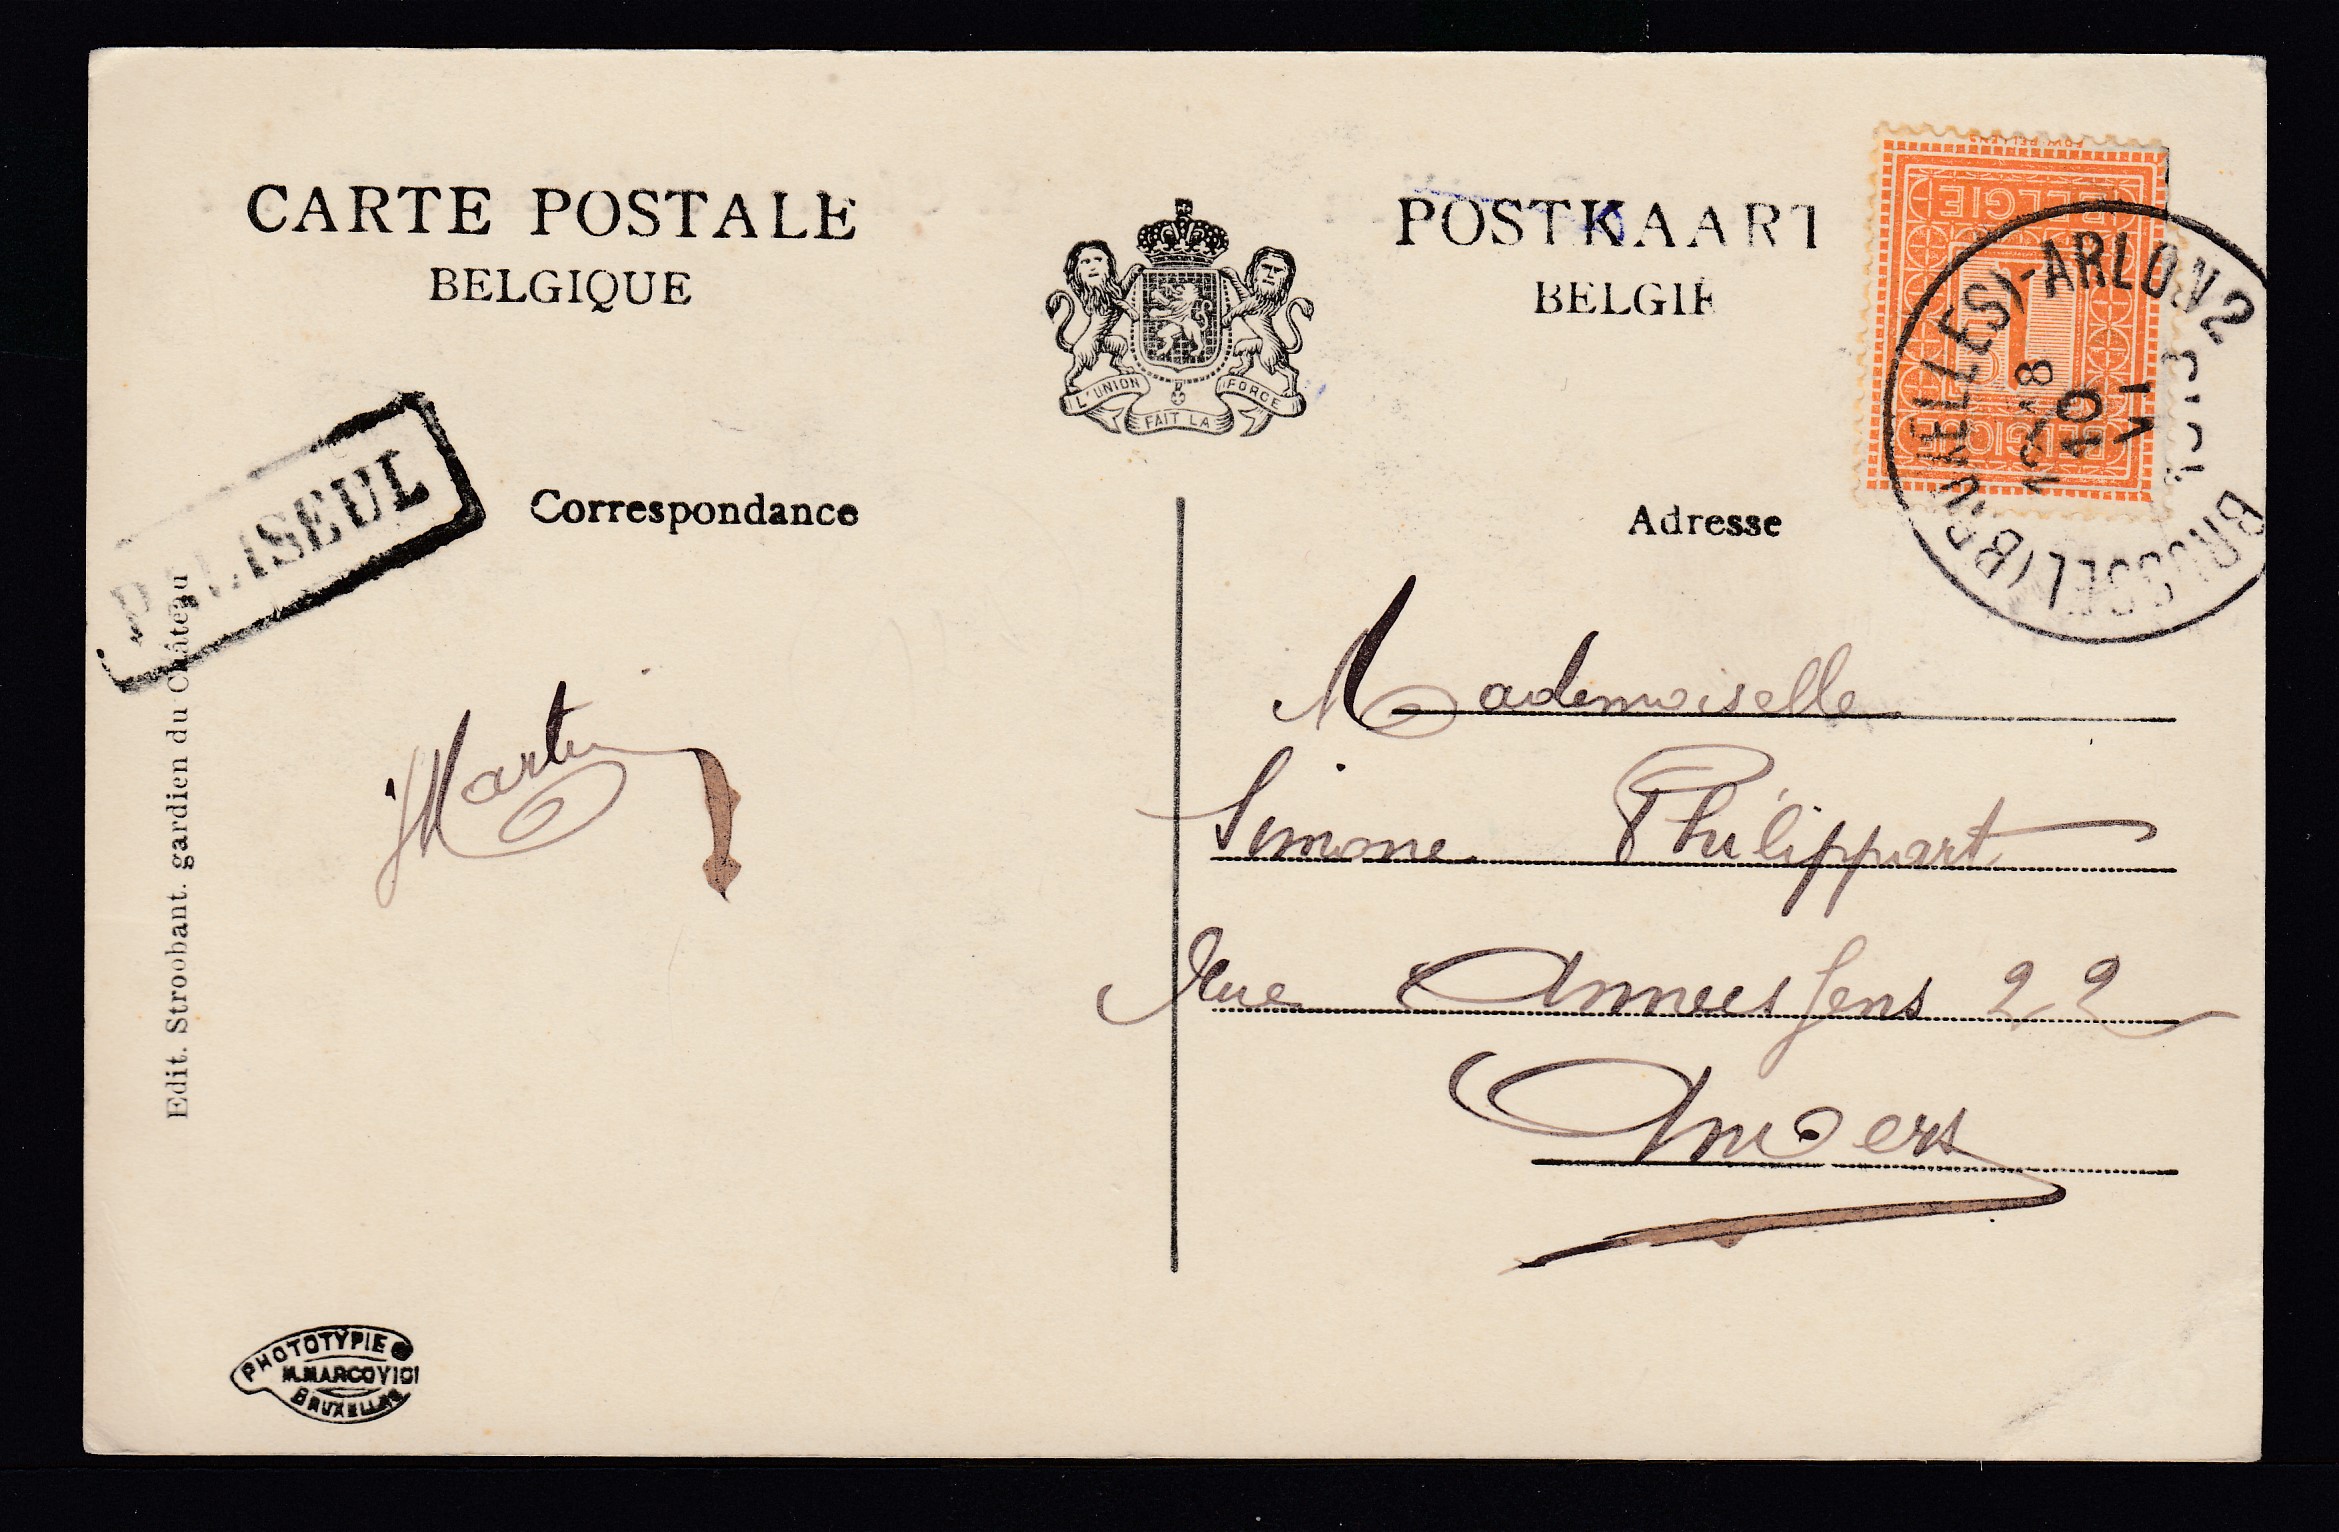 CARTE POSTALE
BELGIQUE
POSTKAART
BELGIË
L'UNION FAIT LA FORCE
BELGIË
1
BELGIQUE
BRUSSEL (BRUXELLES)-ARLON 2
10
VI
PALISEUL
Correspondance
Adresse
Martin
Mademoiselle
Simone Philippart
Rue Anneessens 22
Anvers
Edit. Stroobant. gardien du Château
PHOTOTYPIE
M. MARCOVICI
BRUXELLES